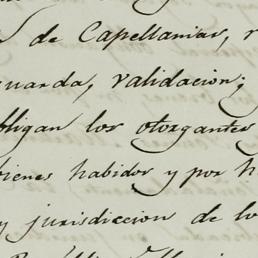 de Capellanias, r
uarda, validacion;
bligan los otorgantes
bienes habidos y por h
y jurisdiccion de lo